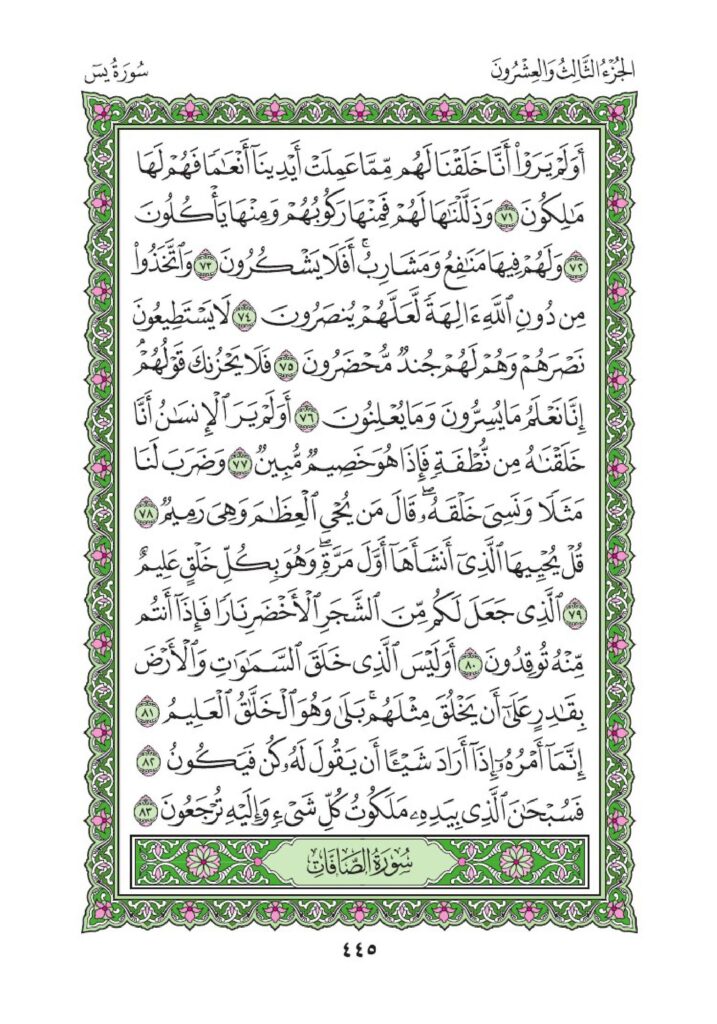 الجُزْءُ الثَّالِثُ وَالعِشْرُونَ
سُورَةُ يسٓ
أَوَلَمْ يَرَوْاْ أَنَّا خَلَقْنَا لَهُم مِّمَّا عَمِلَتْ أَيْدِينَآ أَنْعَٰمًا فَهُمْ لَهَا
مَٰلِكُونَ ٧١ وَذَلَّلْنَٰهَا لَهُمْ فَمِنْهَا رَكُوبُهُمْ وَمِنْهَا يَأْكُلُونَ
٧٢ وَلَهُمْ فِيهَا مَنَٰفِعُ وَمَشَارِبُ ۚ أَفَلَا يَشْكُرُونَ ٧٣ وَٱتَّخَذُواْ
مِن دُونِ ٱللَّهِ ءَالِهَةً لَّعَلَّهُمْ يُنصَرُونَ ٧٤ لَا يَسْتَطِيعُونَ
نَصْرَهُمْ وَهُمْ لَهُمْ جُندٌ مُّحْضَرُونَ ٧٥ فَلَا يَحْزُنكَ قَوْلُهُمْ ۘ
إِنَّا نَعْلَمُ مَا يُسِرُّونَ وَمَا يُعْلِنُونَ ٧٦ أَوَلَمْ يَرَ ٱلْإِنسَٰنُ أَنَّا
خَلَقْنَٰهُ مِن نُّطْفَةٍ فَإِذَا هُوَ خَصِيمٌ مُّبِينٌ ٧٧ وَضَرَبَ لَنَا
مَثَلًا وَنَسِىَ خَلْقَهُۥ ۖ قَالَ مَن يُحْىِ ٱلْعِظَٰمَ وَهِىَ رَمِيمٌ ٧٨
قُلْ يُحْيِيهَا ٱلَّذِىٓ أَنشَأَهَآ أَوَّلَ مَرَّةٍ ۖ وَهُوَ بِكُلِّ خَلْقٍ عَلِيمٌ
٧٩ ٱلَّذِى جَعَلَ لَكُم مِّنَ ٱلشَّجَرِ ٱلْأَخْضَرِ نَارًا فَإِذَآ أَنتُم
مِّنْهُ تُوقِدُونَ ٨٠ أَوَلَيْسَ ٱلَّذِى خَلَقَ ٱلسَّمَٰوَٰتِ وَٱلْأَرْضَ
بِقَٰدِرٍ عَلَىٰٓ أَن يَخْلُقَ مِثْلَهُم ۚ بَلَىٰ وَهُوَ ٱلْخَلَّٰقُ ٱلْعَلِيمُ ٨١
إِنَّمَآ أَمْرُهُۥٓ إِذَآ أَرَادَ شَيْـًٔا أَن يَقُولَ لَهُۥ كُن فَيَكُونُ ٨٢
فَسُبْحَٰنَ ٱلَّذِى بِيَدِهِۦ مَلَكُوتُ كُلِّ شَىْءٍ وَإِلَيْهِ تُرْجَعُونَ ٨٣
سُورَةُ الصَّافَّاتِ
٤٤٥